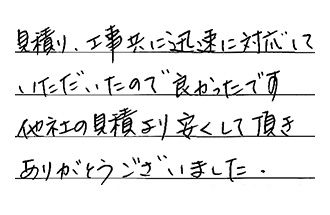 見積り、工事共に迅速に対応して
いただいたので良かったです
他社の見積より安くして頂き
ありがとうございました.